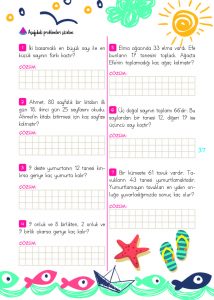 Aşağıdaki problemleri çözelim.
1 İki basamaklı en büyük sayı ile en
küçük sayının farkı kaçtır?
ÇÖZÜM:
2 Ahmet, 80 sayfalık bir kitabın ilk
gün 18, ikinci gün 25 sayfasını okudu.
Ahmet'in kitabı bitirmesi için kaç sayfası
kalmıştır?
ÇÖZÜM:
3 9 deste yumurtanın 12 tanesi kırı-
lırsa geriye kaç yumurta kalır?
ÇÖZÜM:
4 9 onluk ve 8 birlikten, 2 onluk ve
7 birlik çıkarsa geriye kaç kalır?
ÇÖZÜM:
5 Elma ağacında 33 elma vardı. Efe
bunların 17 tanesini topladı. Ağaçta
Efe'nin toplamadığı kaç elma kalmıştır?
ÇÖZÜM:
6 Üç doğal sayının toplamı 66'dır. Bu
sayılardan bir tanesi 12, diğeri 19 ise
üçüncü sayı kaçtır?
ÇÖZÜM:
7 Bir kümeste 61 tavuk vardır. Ta-
vukların 43 tanesi yumurtlamaktadır.
Yumurtlamayan tavukları en yakın onlu-
ğa yuvarladığımızda sonuç kaç olur?
ÇÖZÜM:
37